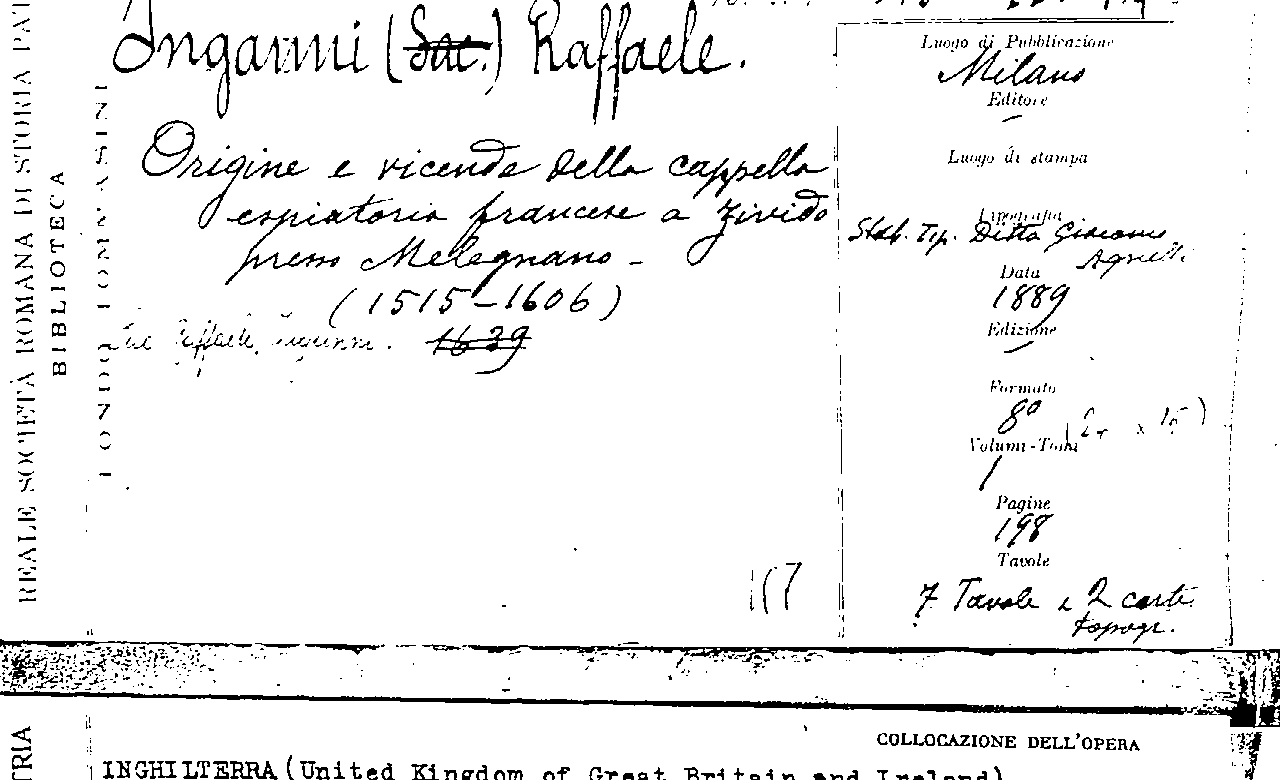 REALE SOCIETÀ ROMANA DI STORIA PAT
BIBLIOTECA
FONDO TOMMASINI
Inganni (Sac.) Raffaele.
Origine e vicende della cappella
espiatoria francese a Zivido
presso Melegnano -
(1515-1606)
Raffaele Inganni. 1639
117
Luogo di Pubblicazione
Milano
Editore
Luogo di stampa
Tipografia
Stab. Tip. Ditta Giacomo
Agnelli
Data
1889
Edizione
Formato
8º
Volumi-Tomi
1
Pagine
198
Tavole
7 Tavole e 2 carte
topogr.
TRIA
COLLOCAZIONE DELL'OPERA
INGHILTERRA (United Kingdom of Great Britain and Ireland)